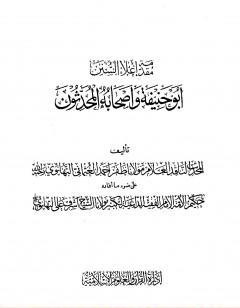 مقدمة إعلاء السنن
أبو حنيفة وأصحابه المحدثون
تأليف
المحدث الناقد العلامة مولانا ظفر أحمد العثماني التهانوي رحمه الله
على ضوء ما أفاده
حكيم الأمة الإمام الفقيه الداعية الكبير مولانا الشيخ أشرف علي التهانوي
إدارة القرآن والعلوم الإسلامية